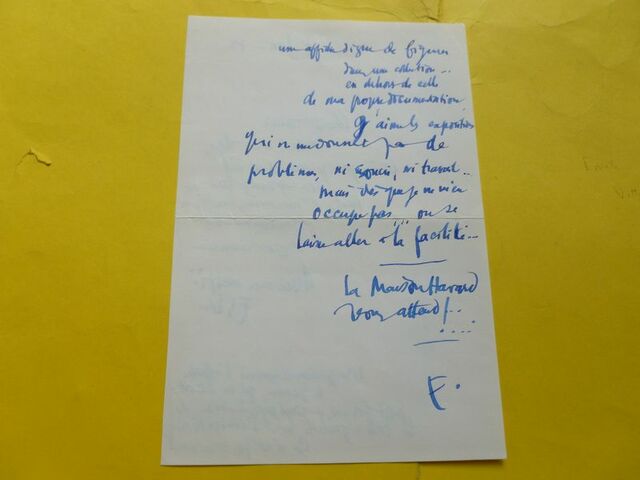 une affiche digne de figurer
dans une collection...
en dehors de celle
de ma propre documentation.
J'aime les expositions
qui ne me donnent pas de
problèmes, ni soucis, ni travail...
mais dès que je ne m'en
occupe pas... on se
laisse aller à la facilité...
La Maison Havard
vous attend!...
E.